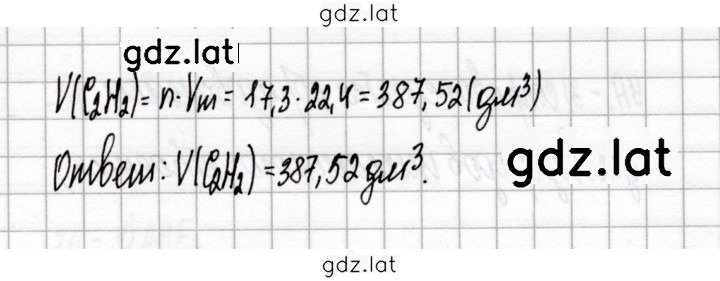 gdz.lat
gdz.lat
V(C₂H₂) = n·Vm = 17,3·22,4 = 387,52 (дм³)
Ответ: V(C₂H₂) = 387,52 дм³.
gdz.lat
gdz.lat